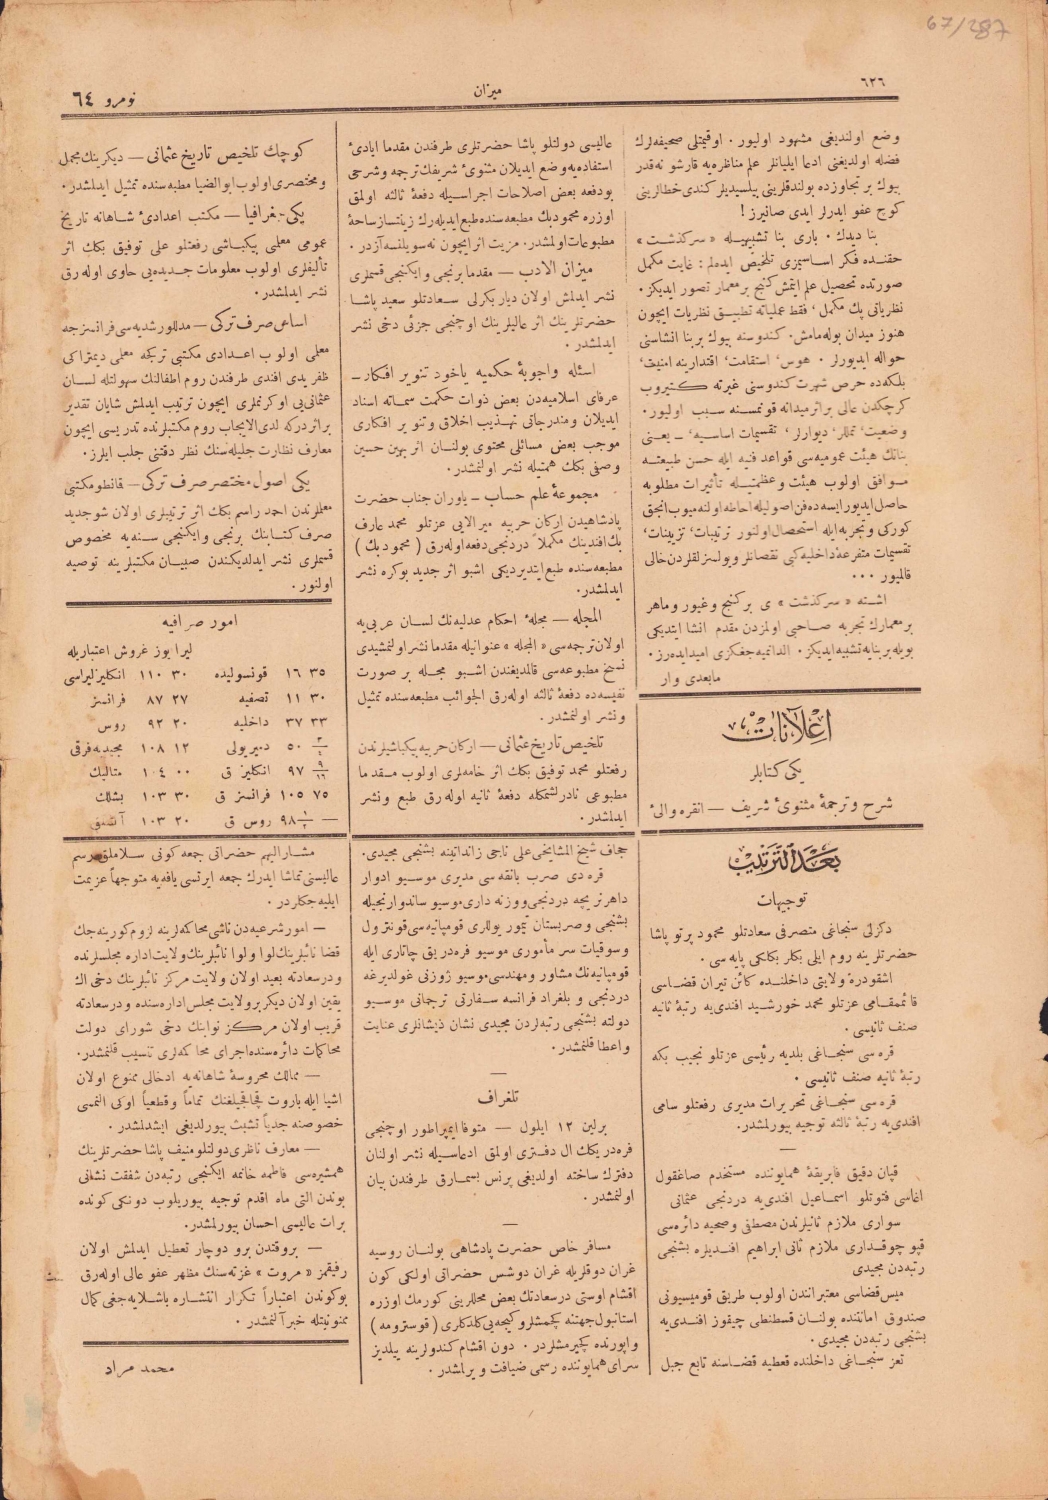 67/287
٦٢٦
میزان
نومرو ٦٤
وضع اولندیغی مشهود اولیور . اوقیمتلی صحیفه‌لرك
فضله اولدیغنی ادعا ایلیانلر علم مناظره‌یه قارشو نه‌قدر
بیوك بر تجاوزده بولندقلرینی بیلسدیلر كندی خطالرینی
كوج عفو ایدرلر ایدی صانیرز !
بنا دیدك . باری بنا تشبیهیله « سركذشت »
حقنده فكر اساسیمزی تلخیص ایده‌لم : غایت مكمل
صورتده تحصیل علم ایتمش كنج بر معمار تصور ایدیكز .
نظریاتی پك مكمل ، فقط عملیاته تطبیق نظریات ایچون
هنوز میدان بوله‌مامش . كندوسنه بیوك بر بنا انشاسنی
حواله ایدیورلر . هوس ، استقامت ، اقتدارینه امنیت ،
بلكه‌ده حرص شهرت كندوسنی غیرته كتیروب
كرچكدن عالی بر اثر میدانه قونمسنه سبب اولیور .
وضعیت ، تمللر ، دیوارلر ، تقسیمات اساسیه ، ــ یعنی
بنانك هیئت عمومیه‌سی قواعد فنیه ایله حسن طبیعته
موافق اولوب هیئت و عظمتیله تأثیرات مطلوبه
حاصل ایدیور ایسه‌ده فن اصولیله احاطه اولنه‌میوب انجق
كوركی و تجربه ایله استحصال اولنور ترتیبات ، تزیینات ،
تقسیمات متفرعۀ داخلیه كبی نقصانلر و یولسزلقلردن خالی
قالمیور ...
اشته « سركذشت » ی بر كنج و غیور و ماهر
بر معمارك تجربه صاحبی اولمزدن مقدم انشا ایتدیكی
بویله بر بنایه تشبیه ایدیكز . الداتمیه‌جغكزی امید ایده‌رز .
مابعدی وار
اعلانات
یكی كتابلر
شرح و ترجمۀ مثنوئ شریف — انقره والئ
عالیسی دولتلو پاشا حضرتلری طرفندن مقدما ایادئ
استفاده‌یه وضع ایدیلان مثنوئ شریفك ترجمه و شرحی
بودفعه بعض اصلاحات اجراسیله دفعۀ ثالثه اولمق
اوزره محمودبك مطبعه‌سنده طبع ایدیله‌رك زینتساز ساحۀ
مطبوعات اولمشدر . مزیت اثر ایچون نه سویلنسه آزدر .
میزان الادب — مقدما برنجی و ایكنجی قسملری
نشر ایدلمش اولان دیاربكرلی سعادتلو سعید پاشا
حضرتلرینك اثر عالیلرینك اوچنجی جزئی دخی نشر
ایدلمشدر .
اسئله و اجوبۀ حكمیه یاخود تنویر افكار —
عرفای اسلامیه‌دن بعض ذوات حكمت سماته اسناد
ایدیلان و مندرجاتی تهذیب اخلاق و تنویر افكاری
موجب بعض مسائلی محتوی بولنان اثر بهین حسین
وصفی بكك همتیله نشر اولنمشدر .
مجموعۀ علم حساب — یاوران جناب حضرت
پادشاهیدن اركان حربیه میر الایی عزتلو محمد عارف
بك افندینك مكملاً دردنجی دفعه اوله‌رق ( محمود بك )
مطبعه‌سنده طبع ایتدیردیكی اشبو اثر جدید بوكره نشر
ایدلمشدر .
المجله — مجلۀ احكام عدلیه‌نك لسان عربی‌یه
اولان ترجمه‌سی « المجله » عنوانیله مقدما نشر اولنمشیدی
نسخ مطبوعه‌سی قالمدیغندن اشبو مجله بر صورت
نفیسه‌ده دفعۀ ثالثه اوله‌رق الجوائب مطبعه‌سنده تمثیل
و نشر اولنمشدر .
تلخیص تاریخ عثمانی — اركان حربیه بیكباشیلرندن
رفعتلو محمد توفیق بكك اثر خامه‌لری اولوب مقدما
مطبوعی نادرلشمكله دفعۀ ثانیه اوله‌رق طبع و نشر
ایدلمشدر .
كوچك تلخیص تاریخ عثمانی — دیكرینك مجمل
و مختصری اولوب ابوالضیا مطبعه‌سنده تمثیل ایدلمشدر .
یكی جغرافیا — مكتب اعدادئ شاهانه تاریخ
عمومی معلمی بیكباشی رفعتلو علی توفیق بكك اثر
تألیفلری اولوب معلومات جدیده‌یی حاوی اوله‌رق
نشر ایدلمشدر .
اساس صرف تركی — مدللو رشدیه‌سی فرانسزجه
معلمی اولوب اعدادی مكتبی تركجه معلمی دیمتراكی
ظفریدی افندی طرفندن روم اطفالنك سهولتله لسان
عثمانی‌یی اوكرنملری ایچون ترتیب ایدلمش شایان تقدیر
بر اثردركه لدی الایجاب روم مكتبلرنده تدریسی ایچون
معارف نظارت جلیله‌سنك نظر دقتنی جلب ایلرز .
یكی اصول مختصر صرف تركی — قانطو مكتبی
معلملرندن احمد راسم بكك اثر ترتیبلری اولان شو جدید
صرف كتابنك برنجی و ایكنجی سنه‌یه مخصوص
قسملری نشر ایدلدیكندن صبیان مكتبلرینه توصیه
اولنور .
امور صرافیه
لیرا یوز غروش اعتباریله
٣٥ ١٦ قونسولیده ٣٠ ١١٠ انكلیز لیراسی
٣٠ ١١ تصفیه ٢٧ ٨٧ فرانسز
٣٣ ٣٧ داخلیه ٢٠ ٩٢ روس
٥٠ دمیریولی ١٢ ١٠٨ مجیدیه فرقی
٩٧ انكلیز ق ٠٠ ١٠٤ متالیك
٧٥ ١٠٥ فرانسز ق ٣٠ ١٠٣ بشلك
— ٩٨ ١/٢ روس ق ٢٠ ١٠٣ آلتیلق
بعد الترتیب
توجیهات
دكزلی سنجاغی متصرفی سعادتلو محمود پرتو پاشا
حضرتلرینه روم ایلی بكلر بكلكی پایه‌سی .
اشقودره ولایتی داخلنده كائن تیران قضاسی
قائمقامی عزتلو محمد خورشید افندی‌یه رتبۀ ثانیه
صنف ثانیسی .
قره‌سی سنجاغی بلدیه رئیسی عزتلو نجیب بكه
رتبۀ ثانیه صنف ثانیسی .
قره‌سی سنجاغی تحریرات مدیری رفعتلو سامی
افندی‌یه رتبۀ ثالثه توجیه بیورلمشدر .
—
قپان دقیق فابریقۀ همایوننده مستخدم صاغقول
اغاسی فتوتلو اسماعیل افندی‌یه دردنجی عثمانی
سواری ملازم ثانیلرندن مصطفی و صحیه دائره‌سی
قپو چوقه‌داری ملازم ثانی ابراهیم افندیلره بشنجی
رتبه‌دن مجیدی
میس قضاسی معتبرانندن اولوب طریق قومیسیونی
صندوق امانتنده بولنان قسطنطی چیقوز افندی‌یه
بشنجی رتبه‌دن مجیدی .
تعز سنجاغی داخلنده قعطبه قضاسنه تابع جبل
جحاف شیخ المشایخی علی ناجی زاندانینه بشنجی مجیدی .
قره دی صرب بانقه‌سی مدیری موسیو ادوار
داهرنریچه دردنجی ووزنه‌داری موسیو ساندوارنجیله
بشنجی و صربستان تیمور یوللری قومپانیه‌سی قونترول
و سوقیات سر مأموری موسیو فره‌دریق چاتاری ایله
قومپانیه‌نك مشاور و مهندسی موسیو ژوزنی غولدبرغه
دردنجی و بلغراد فرانسه سفارتی ترجمانی موسیو
دولته بشنجی رتبه‌لردن مجیدی نشان ذیشانلری عنایت
و اعطا قلنمشدر .
—
تلغراف
برلین ١٢ ایلول — متوفا ایمپراطور اوچنجی
فره‌دریكك ال دفتری اولمق ادعاسیله نشر اولنان
دفترك ساخته اولدیغی پرنس بسمارق طرفندن بیان
اولنمشدر .
—
مسافر خاص حضرت پادشاهی بولنان روسیه
غران دوقلریله غران دوشس حضراتی اولكی كون
اقشام اوستی درسعادتك بعض محللرینی كورمك اوزره
استانبول جهتنه كچمشلرو كیجه‌یی كلدكلری ( قوسترومه )
واپورنده كچیرمشلردر . دون اقشام كندولرینه ییلدیز
سرای همایوننده رسمی ضیافت ویرلمشدر .
مشارالیهم حضراتی جمعه كونی سلاملق رسم
عالیسنی تماشا ایدرك جمعه ایرتسی یافه‌یه متوجهاً عزیمت
ایلیه‌جكلردر .
— امور شرعیه‌دن ناشی محاكمه‌لرینه لزوم كورینه‌جك
قضا نائبلرینك لوا و لوا نائبلرینك ولایت اداره مجلسلرنده
و درسعادته بعید اولان ولایت مركز نائبلرینك دخی اك
یقین اولان دیكر بر ولایت مجلس اداره‌سنده و درسعادته
قریب اولان مركز نوابنك دخی شورای دولت
محاكمات دائره‌سنده اجرای محاكمه‌لری تنسیب قلنمشدر .
— ممالك محروسۀ شاهانه‌یه ادخالی ممنوع اولان
اشیا ایله باروت قچاقجیلغنك تماماً و قطعیاً اوكی النمسی
خصوصنه جدیاً تشبث بیورلدیغی ایشدلمشدر .
— معارف ناظری دولتلو منیف پاشا حضرتلرینك
همشیره‌سی فاطمه خانمه ایكنجی رتبه‌دن شفقت نشانی
بوندن التی ماه اقدم توجیه بیوریلوب دونكی كونده
برات عالیسی احسان بیورلمشدر .
— بر وقتدن برو دوچار تعطیل ایدلمش اولان
رفیقمز « مروت » غزته‌سنك مظهر عفو عالی اوله‌رق
بوكوندن اعتباراً تكرار انتشاره باشلایه‌جغی كمال
ممنونیتله خبر آلنمشدر .
محمد مراد